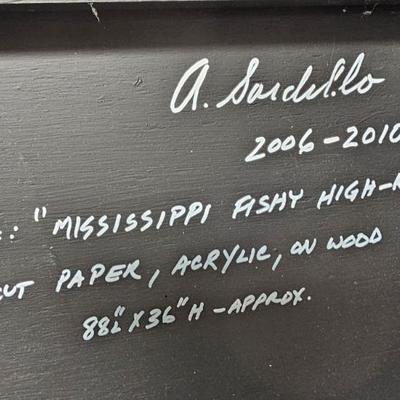 A. Sardillo
2006-2010
: "MISSISSIPPI FISHY HIGH-
CUT PAPER, ACRYLIC, ON WOOD
88"L X 36"H - APPROX.